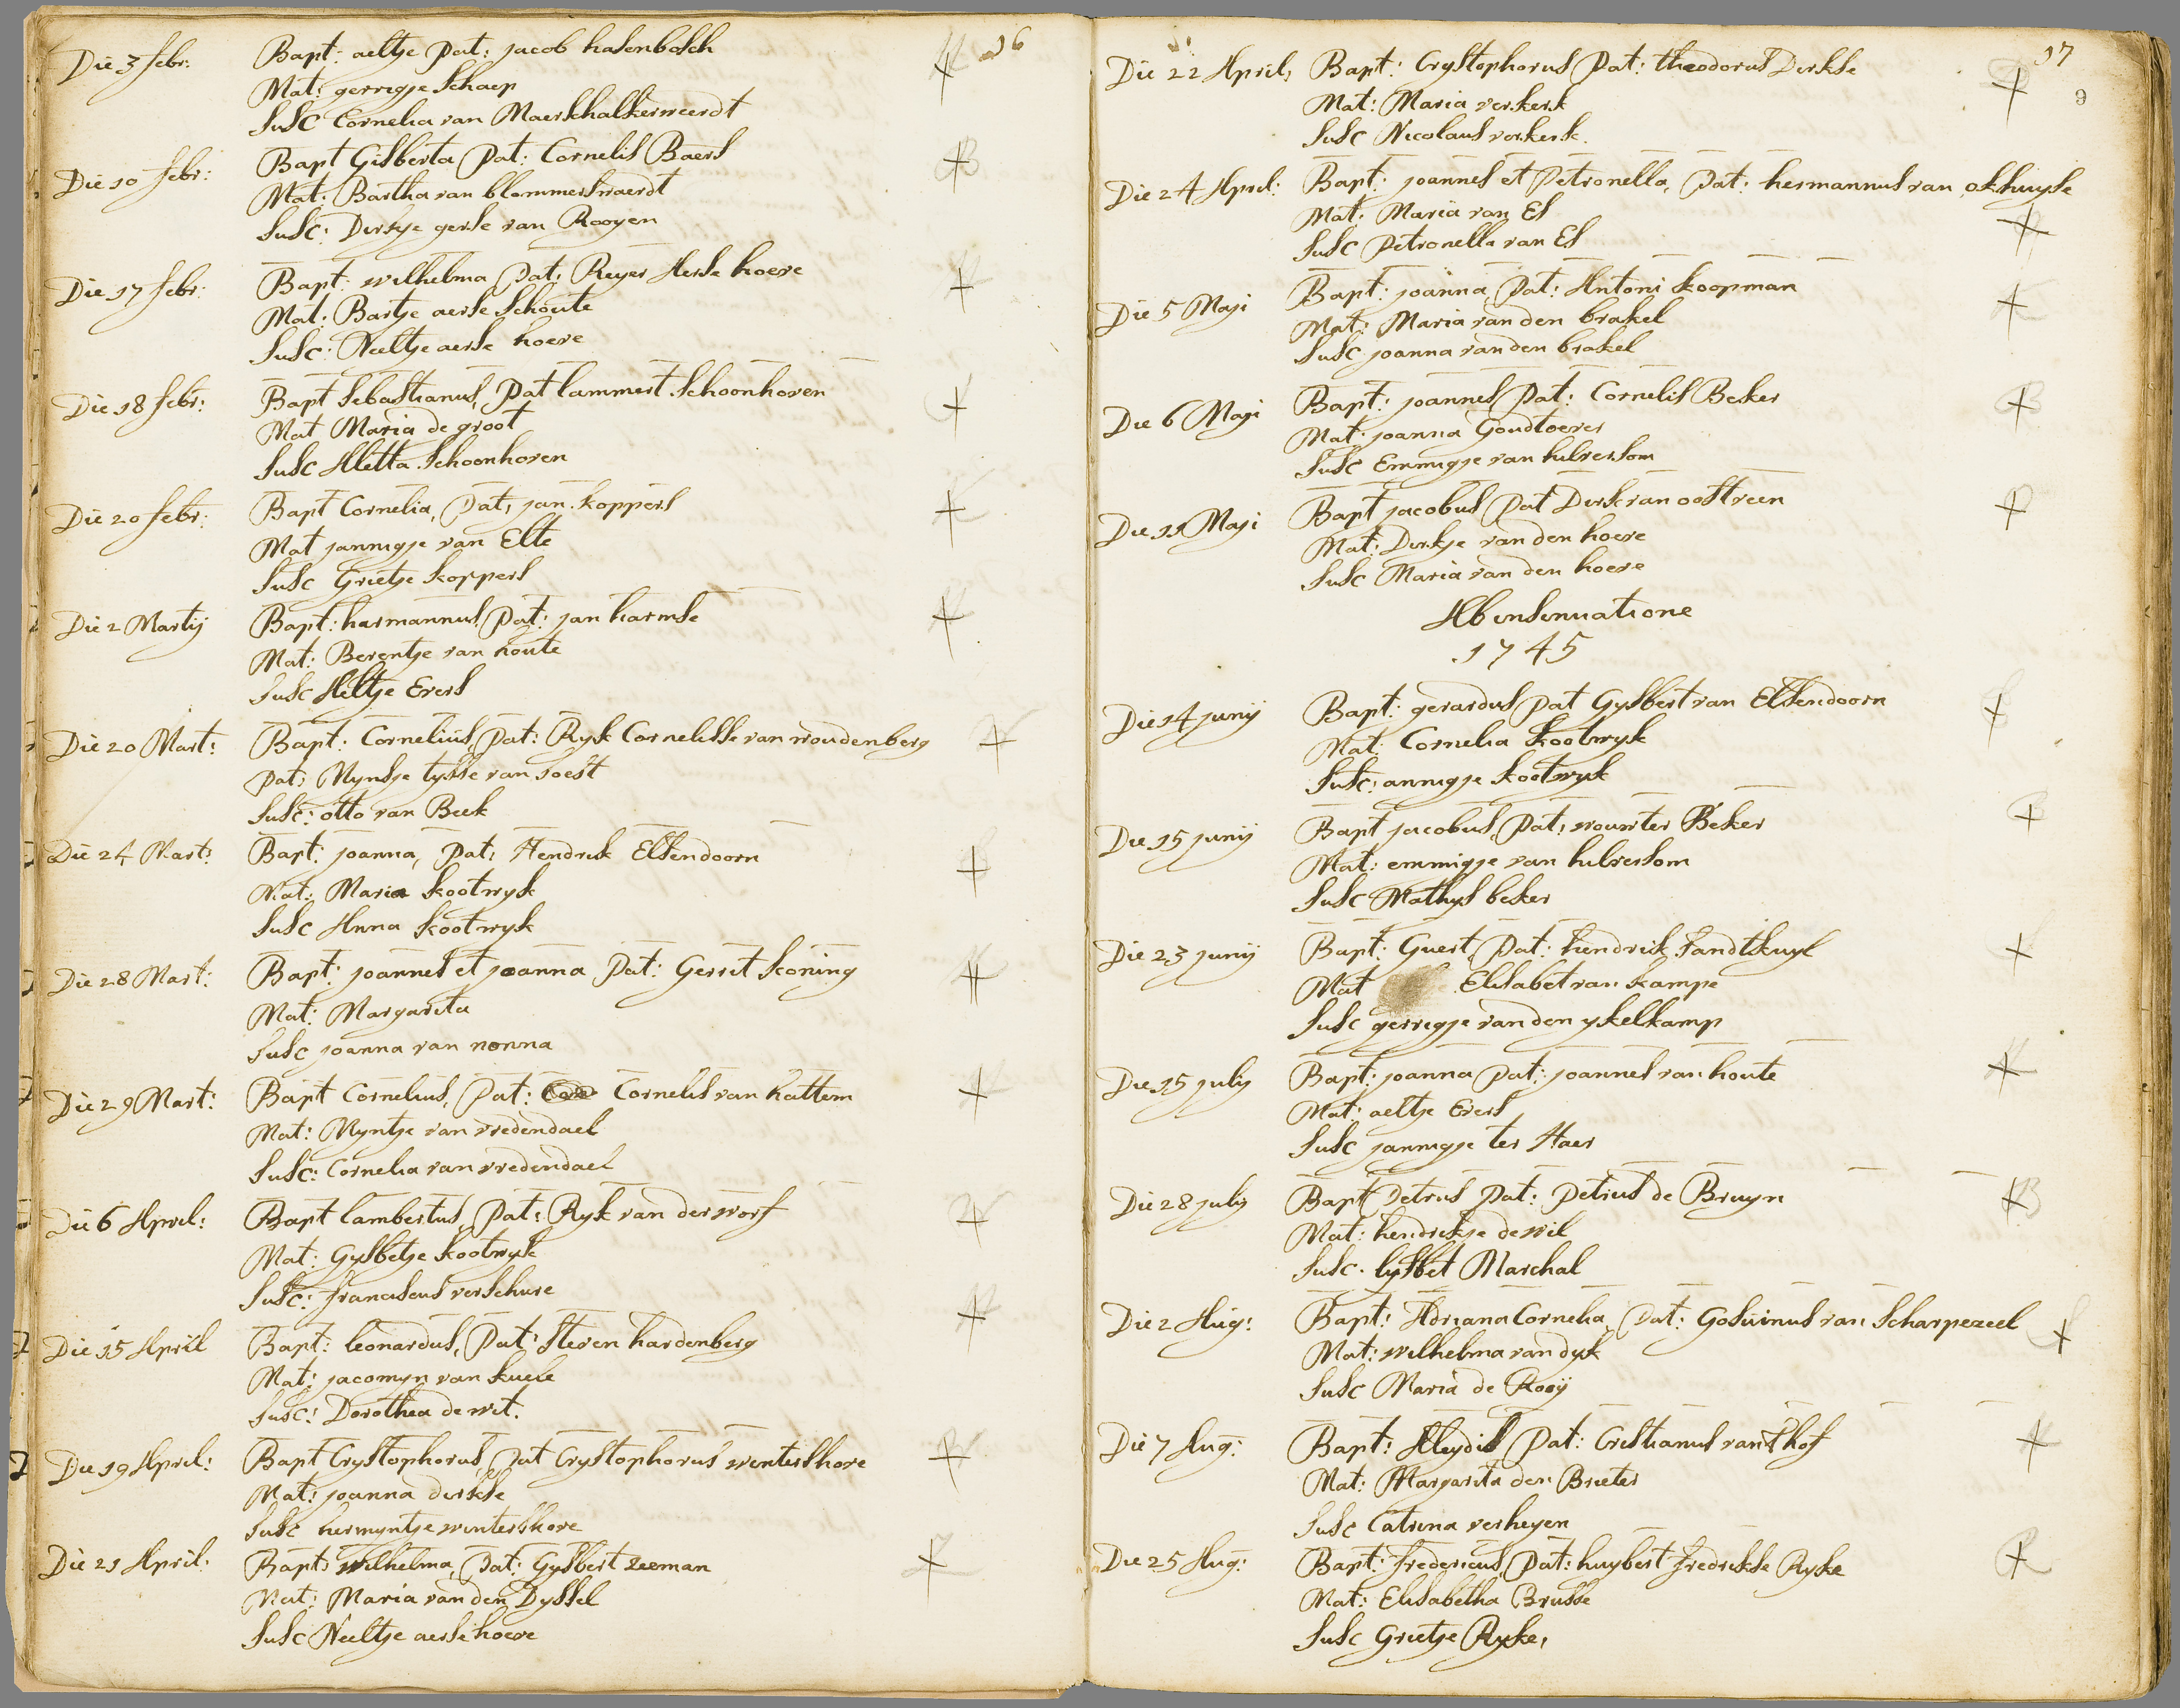 16
Die 3 febr: Bapt: aeltje Pat: jacob hasenbosch
Mat: gerregje Schaep
Susc Cornelia van Maerschalkerweerdt
Die 10 febr: Bapt Gisberta Pat: Cornelis Baers
Mat: Bartha van blommerswaerdt
Susc: Dirkje gerse van Rooyen
Die 17 febr: Bapt: wilhelma Pat: Reyer Aerse hoeve
Mat: Bartje aerse Schoute
Susc: Neeltje aerse hoeve
Die 18 febr: Bapt Sebastianus, Pat lammert Schoonhoven
Mat Maria de groot
Susc Aletta Schoonhoven
Die 20 febr: Bapt Cornelia, Pat: jan koppers
Mat jannigje van Elte
Susc Grietje koppers
Die 2 Martij Bapt: harmannus, Pat: jan harmse
Mat: Berentje van houte
Susc Aeltje Evers
Die 20 Mart: Bapt: Cornelius, Pat: Ryk Cornelisse van woudenberg
Pat: Myntje tysse van soest
Susc: otto van Beek
Die 24 Mart: Bapt: joanna, Pat: Hendrik Elsendoorn
Mat: Maria kootwyk
Susc Anna kootwyk
Die 28 Mart: Bapt: joannes et joanna Pat: Gerrit koning
Mat: Margarita
Susc joanna van nonna
Die 29 Mart: Bapt Cornelius, Pat: Cornelis van hattem
Mat: Myntje van vredendael
Susc: Cornelia van vredendael
Die 6 April: Bapt lambertus, Pat: Ryk van der worf
Mat: Gysbetje kootwyk
Susc: franciscus verschure
Die 15 April Bapt: leonardus, Pat: Steven hardenberg
Mat: jacomyn van kuele
Susc: Dorothea de wit.
Die 19 April: Bapt Crystophorus, Pat Crystophorus wentershove
Mat: joanna dirkse
Susc hermyntje wintershove
Die 21 April: Bapt: wilhelma, Pat: Gysbert Zeeman
Mat: Maria van den Dyssel
Susc Neeltje aerse hoeve
17
9
Die 22 April: Bapt: Crystophorus Pat: theodorus Dirkse
Mat: Maria verkerk
Susc Nicolaus verkerk.
Die 24 April: Bapt: joannes et Petronella, Pat: hermannus van okhuyse
Mat: Maria van Es
Susc Petronella van Es
Die 5 Maji Bapt: joanna, Pat: Antoni koopman
Mat: Maria van den brakel
Susc joanna van den brakel
Die 6 Maji Bapt: joannes, Pat: Cornelis Beker
Mat: joanna Goudtoever
Susc Emmigje van hulversom
Die 11 Maji Bapt jacobus Pat Dirk van oostveen
Mat: Dirkje van den hoeve
Susc Maria van den hoeve
Ab insinuatione
1745
Die 14 junij Bapt: gerardus Pat Gysbert van Elsendoorn
Mat: Cornelia kootwyk
Susc: annigje kootwyk
Die 15 junij Bapt jacobus, Pat: wouwter Beker
Mat: emmigje van hulversom
Susc Mathys beker
Die 23 junij Bapt: Guert, Pat: hendrick Sandtkuyl
Mat Elisabet van kampe
Susc gerregje van den ykelkamp
Die 15 julij Bapt: joanna Pat: joannes van houte
Mat: aeltje Evers
Susc jannigje ter Haer
Die 28 julij Bapt Petrus Pat: Petrus de Bruyn
Mat: hendrikje de wil
Susc. lysbet Marchal
Die 2 Aug: Bapt: Adriana Cornelia, Pat: Gosuinus van Scharpezeel
Mat: wilhelma van dyk
Susc Maria de Rooij
Die 7 Aug: Bapt: Aleydis Pat: Cristianus vant hof
Mat: Margarita den Brieter
Susc Catrina verheyen
Die 25 Aug: Bapt: fredericus, Pat: huybert fredrikse Ryke
Mat: Elisabetha Brusse
Susc Grietje Ryke,